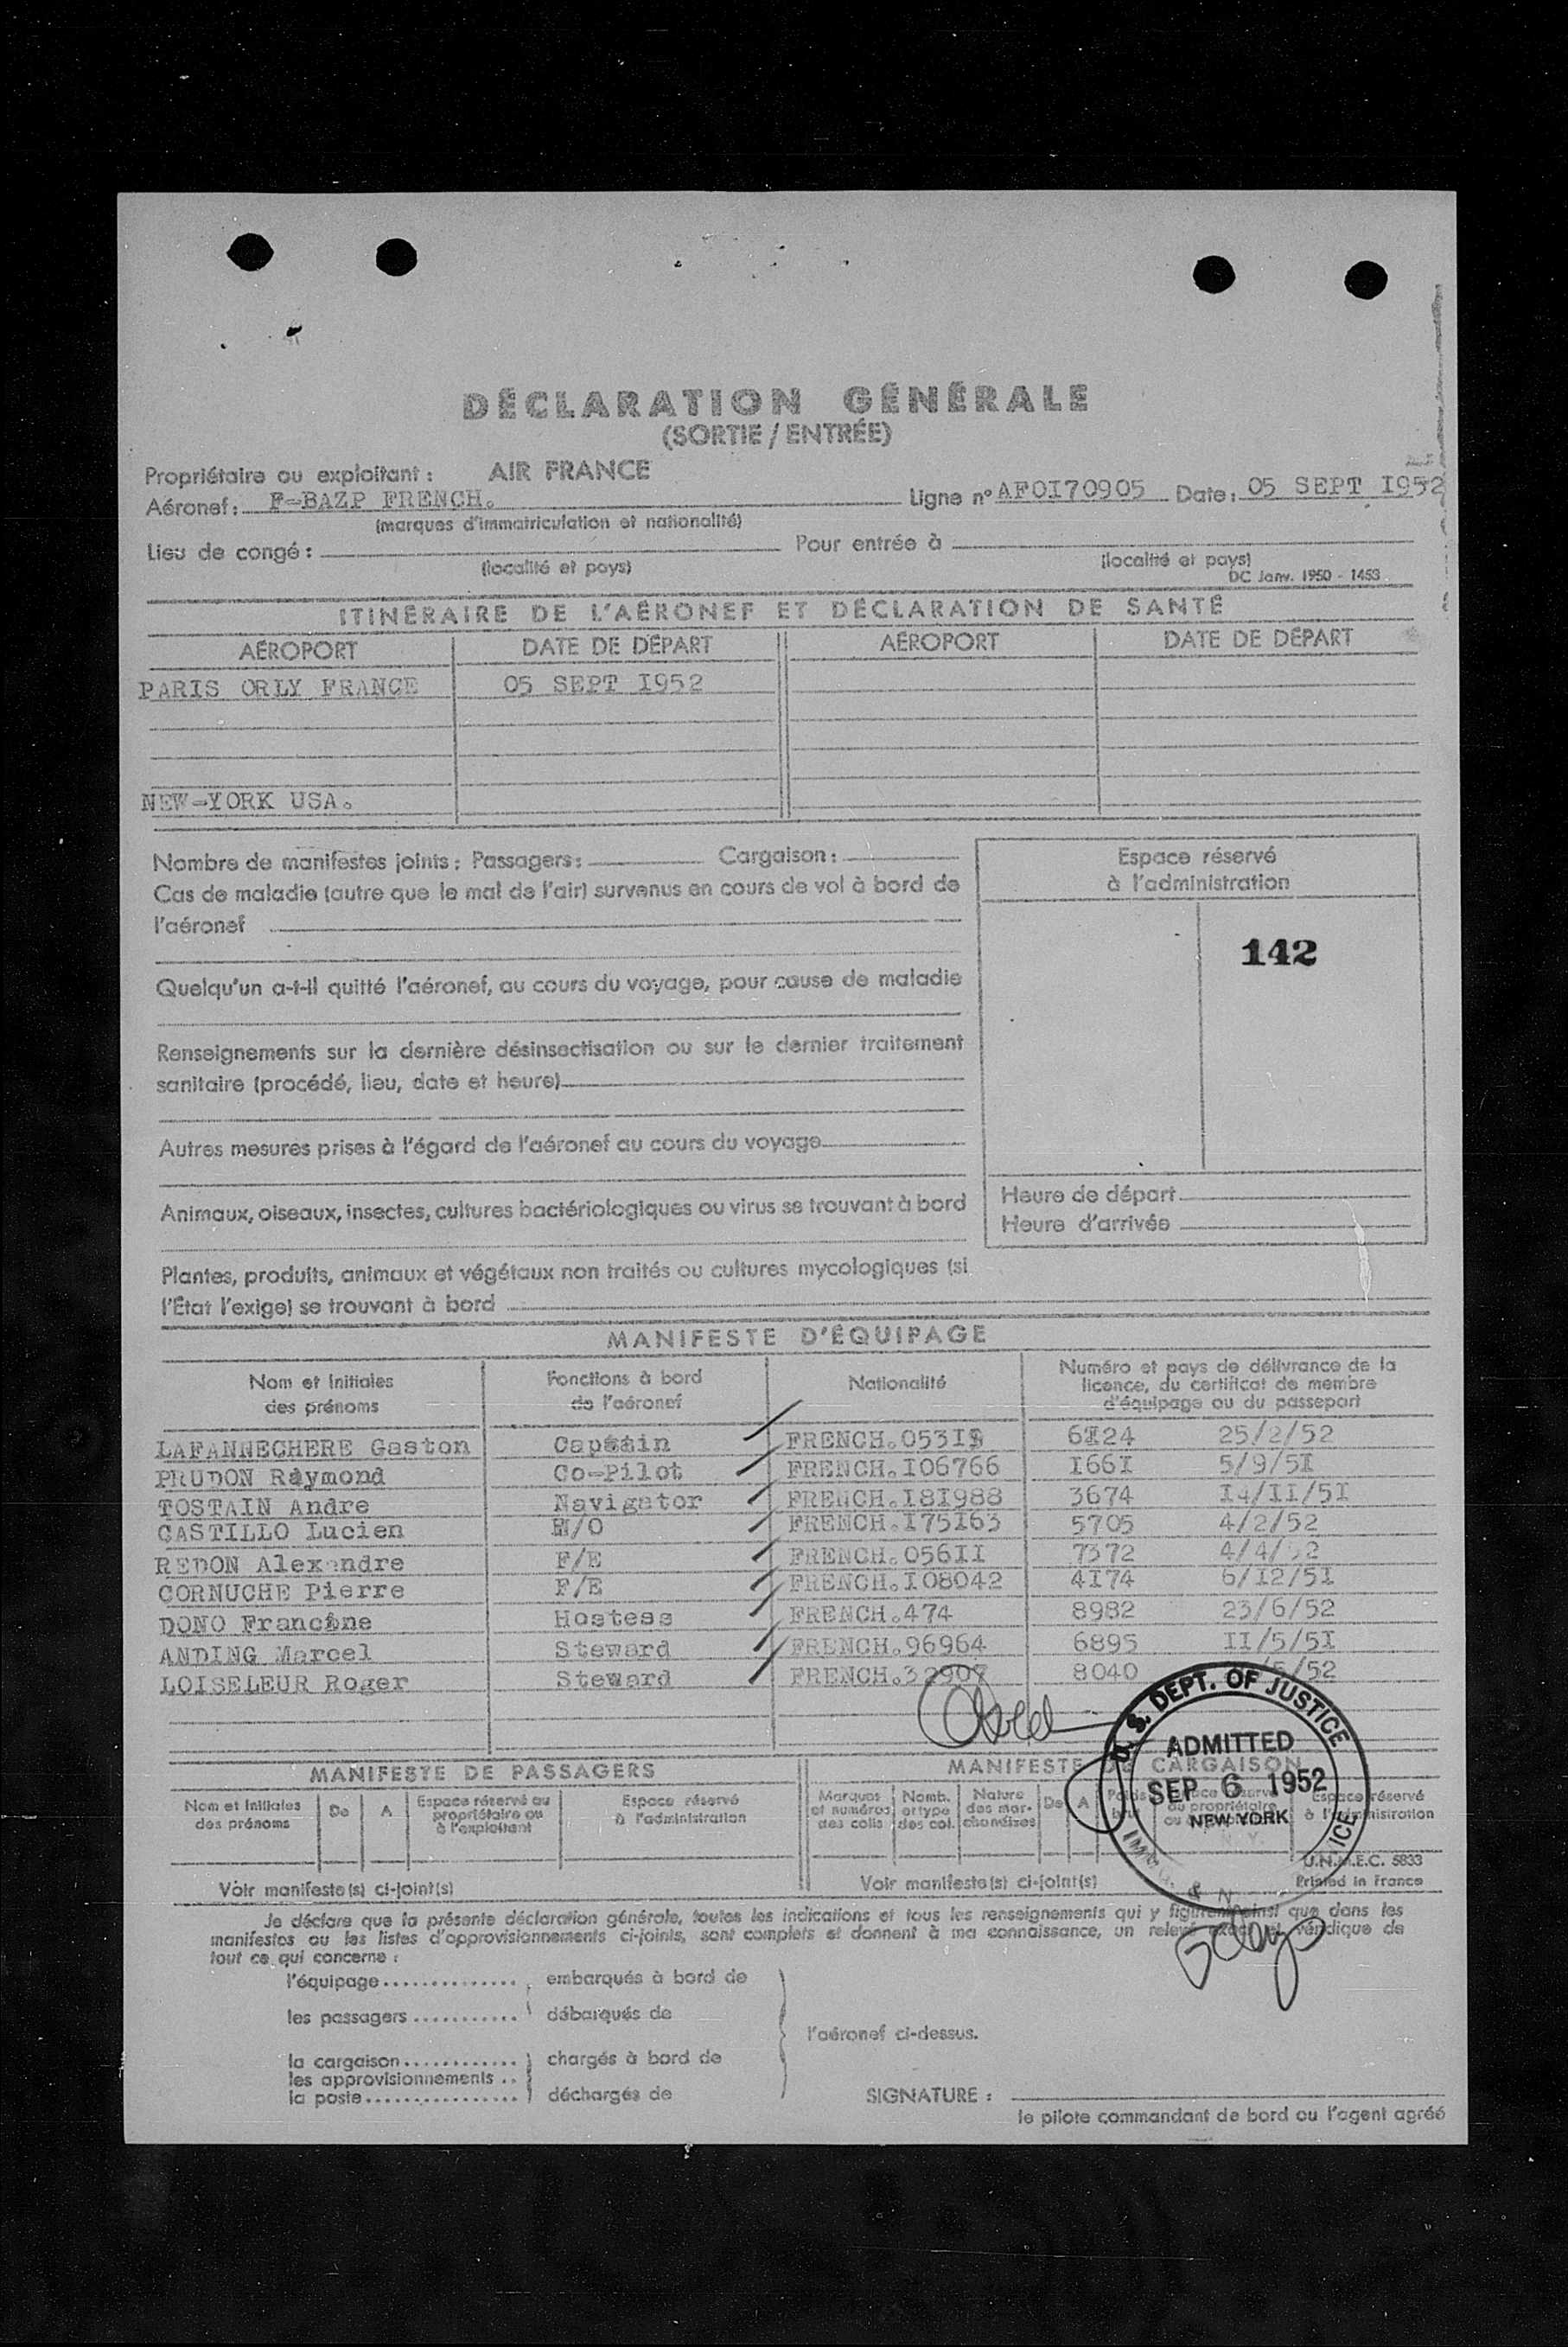 DÉCLARATION GÉNÉRALE
(SORTIE / ENTRÉE)
Propriétaire ou exploitant : AIR FRANCE
Aéronef : F-BAZP FRENCH. Ligne n° AF0I70905 Date : 05 SEPT I952
(marques d'immatriculation et nationalité)
Lieu de congé : Pour entrée à
(localité et pays) (localité et pays)
DC Janv. 1950 - 1453
ITINÉRAIRE DE L'AÉRONEF ET DÉCLARATION DE SANTÉ
AÉROPORT DATE DE DÉPART AÉROPORT DATE DE DÉPART
PARIS ORLY FRANCE 05 SEPT I952
NEW-YORK USA.
Nombre de manifestes joints : Passagers : Cargaison :
Cas de maladie (autre que le mal de l'air) survenus en cours de vol à bord de
l'aéronef
Quelqu'un a-t-il quitté l'aéronef, au cours du voyage, pour cause de maladie
Renseignements sur la dernière désinsectisation ou sur le dernier traitement
sanitaire (procédé, lieu, date et heure)
Autres mesures prises à l'égard de l'aéronef au cours du voyage
Animaux, oiseaux, insectes, cultures bactériologiques ou virus se trouvant à bord
Plantes, produits, animaux et végétaux non traités ou cultures mycologiques (si
l'État l'exige) se trouvant à bord
Espace réservé
à l'administration
142
Heure de départ
Heure d'arrivée
MANIFESTE D'ÉQUIPAGE
Nom et Initiales des prénoms
Fonctions à bord de l'aéronef
Nationalité
Numéro et pays de délivrance de la
licence, du certificat de membre
d'équipage ou du passeport
LAFANNECHERE Gaston Captain FRENCH. 6I24 25/2/52
PRUDON Raymond Co-Pilot FRENCH.I06766 I66I 5/9/5I
TOSTAIN Andre Navigator FRENCH.I81988 3674 I4/II/5I
CASTILLO Lucien /O FRENCH.I75I63 5705 4/2/52
REDON Alexandre F/E FRENCH.056II 7372 4/4/52
CORNUCHE Pierre F/E FRENCH.I08042 4I74 6/I2/5I
DONO Francine Hostess FRENCH.474 8982 23/6/52
ANDING Marcel Steward FRENCH.96964 6895 II/5/5I
LOISELEUR Roger Steward FRENCH.32907 8040 /52
U. S. DEPT. OF JUSTICE
ADMITTED
SEP 6 1952
NEW YORK
MANIFESTE DE PASSAGERS MANIFESTE DE CARGAISON
Nom et Initiales des prénoms
De A
Espace réservé au propriétaire ou à l'exploitant
Espace réservé à l'administration
Marques et numéros des colis
Nomb. et type des col.
Nature des marchandises
De A
Espace réservé à l'administration
U.N.M.E.C. 5833
Voir manifeste(s) ci-joint(s) Voir manifeste(s) ci-joint(s) Printed in France
Je déclare que la présente déclaration générale, toutes les indications et tous les renseignements qui y figurent ainsi que dans les
manifestes ou les listes d'approvisionnements ci-joints, sont complets et donnent à ma connaissance, un relevé exact et véridique de
tout ce qui concerne :
l'équipage............... embarqués à bord de
les passagers........... débarqués de
l'aéronef ci-dessus.
la cargaison............ chargés à bord de
les approvisionnements ..
la poste................ déchargés de
SIGNATURE :
le pilote commandant de bord ou l'agent agréé